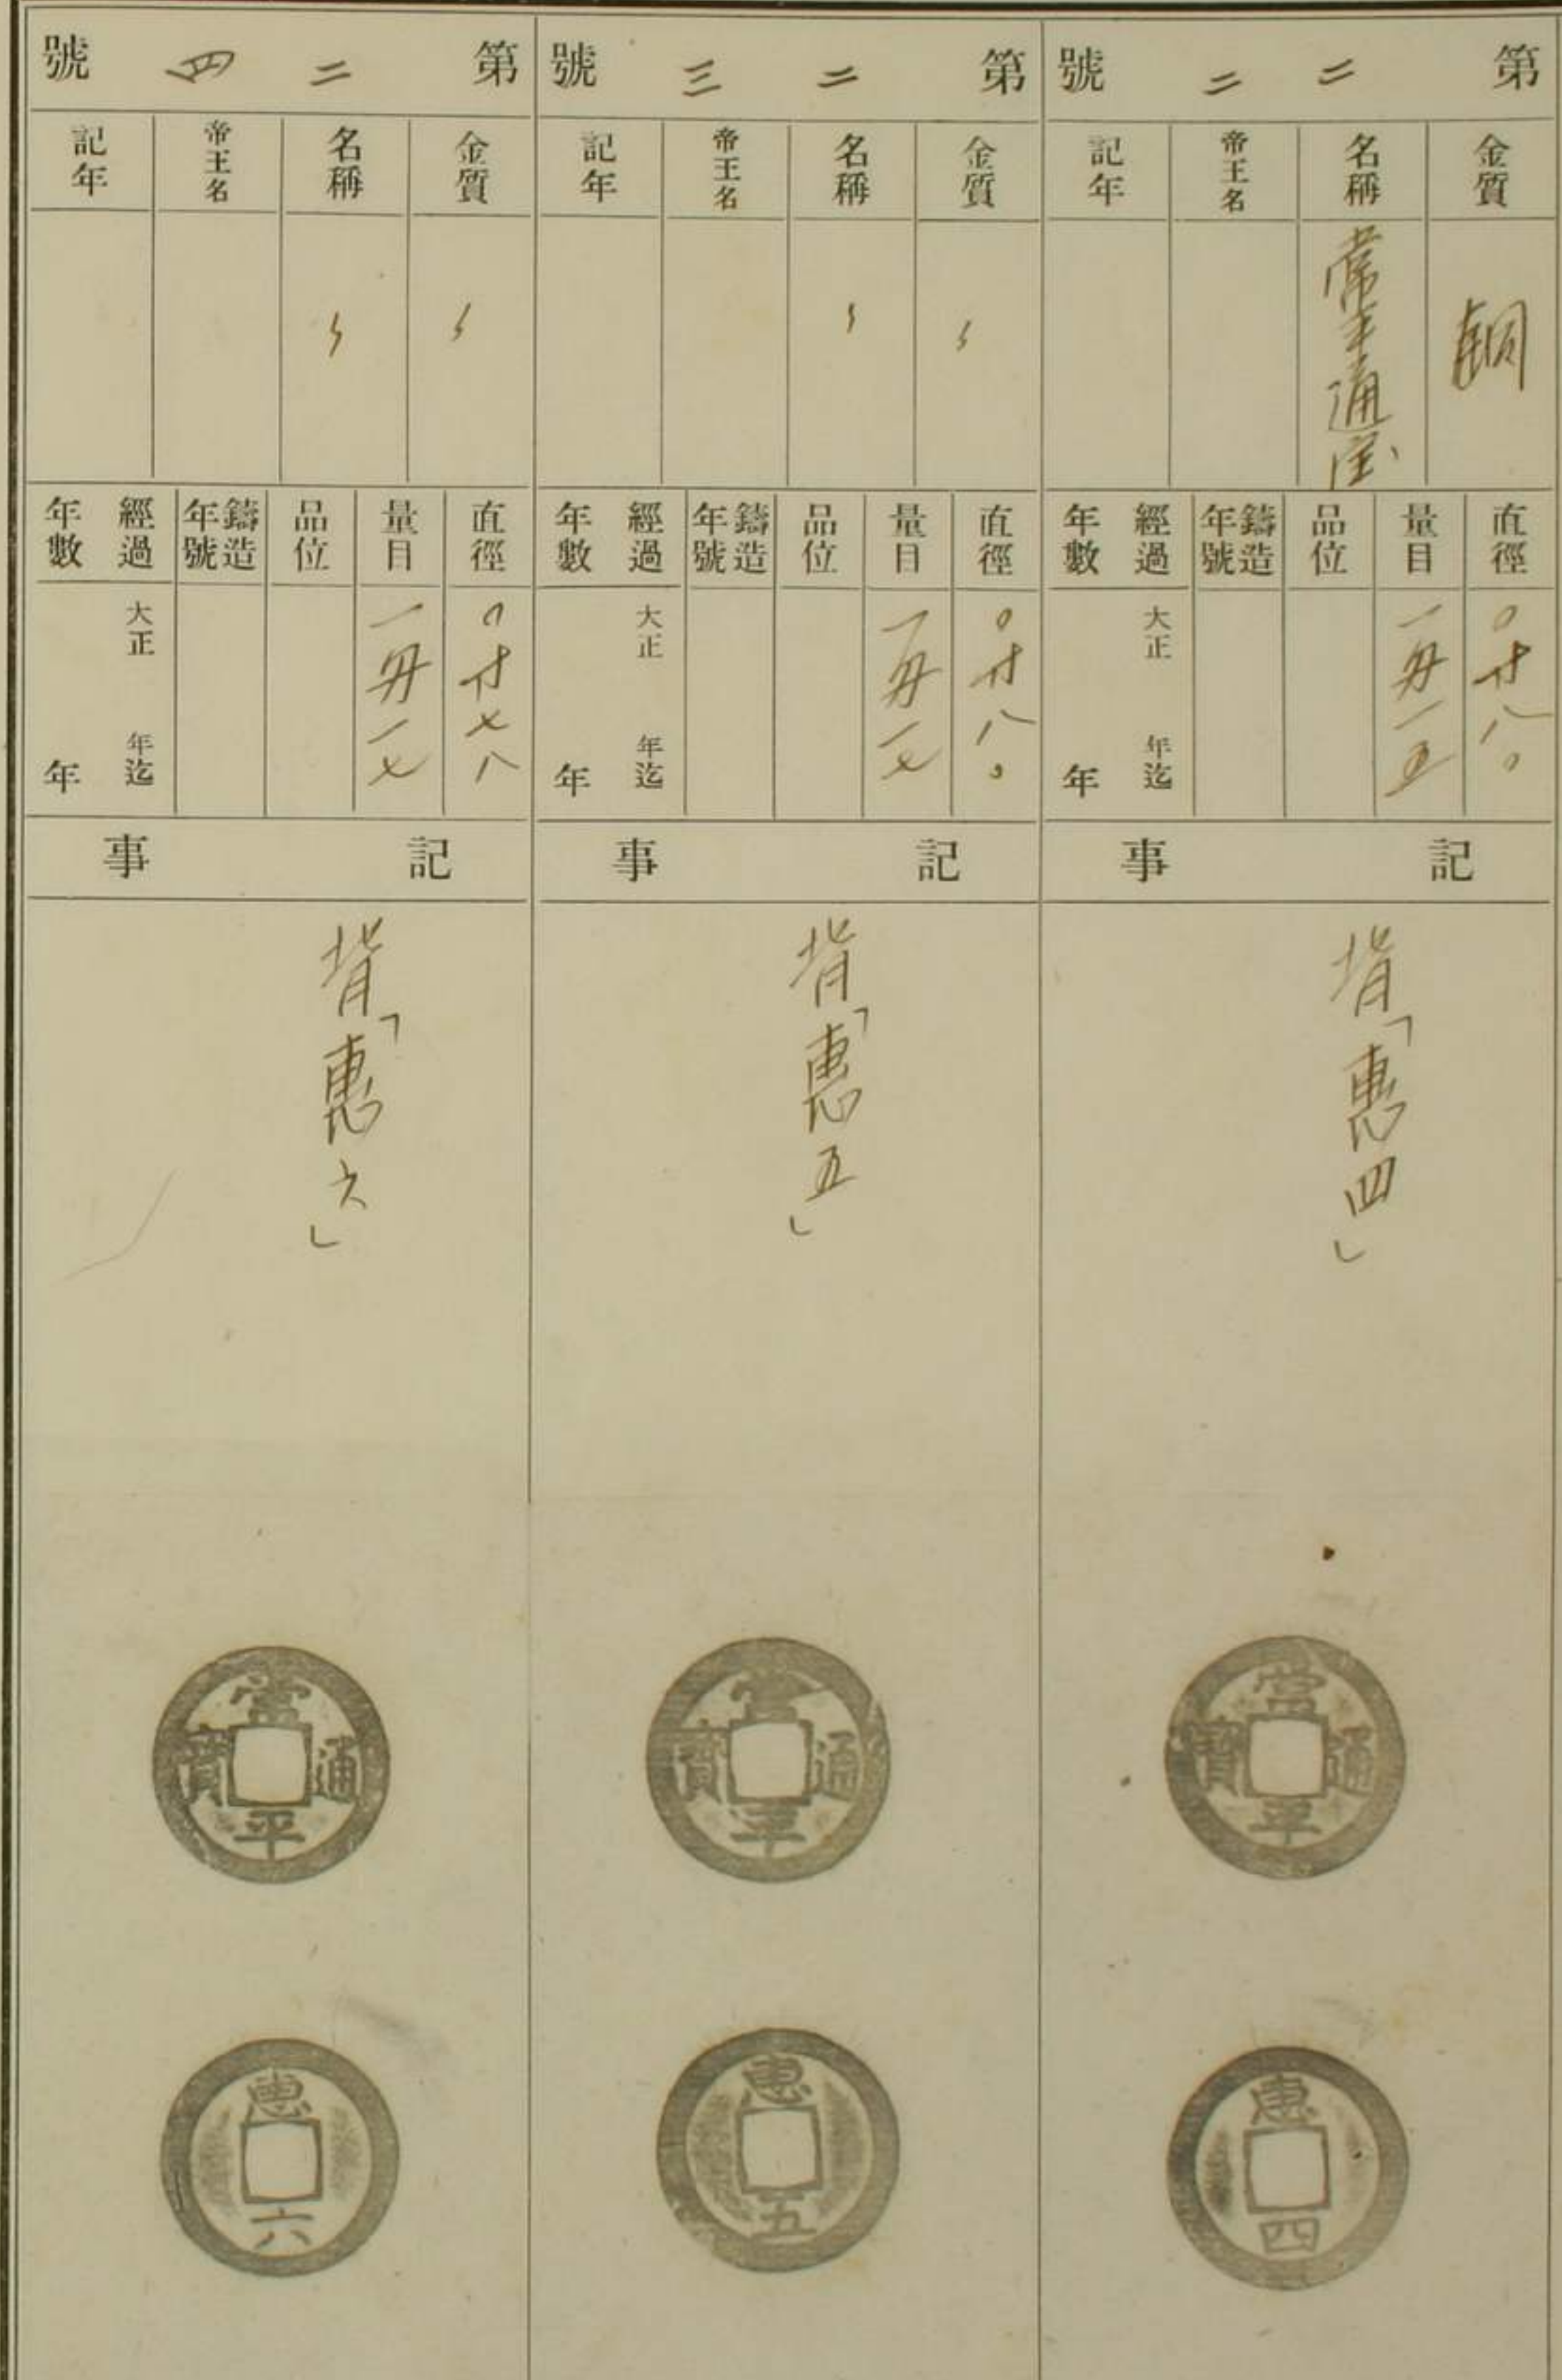 第二二號
金質
銅
名稱
常平通宝
帝王名
記年
直徑
〇寸八〇
量目
一匁一五
品位
鑄造年號
經過年數
大正 年迄
年
記事
背「惠四」
常平通寶
惠四
第二三號
金質
〻
名稱
〻
帝王名
記年
直徑
〇寸八〇
量目
一匁一七
品位
鑄造年號
經過年數
大正 年迄
年
記事
背「惠五」
常平通寶
惠五
第二四號
金質
〻
名稱
〻
帝王名
記年
直徑
〇寸七八
量目
一匁一七
品位
鑄造年號
經過年數
大正 年迄
年
記事
背「惠六」
常平通寶
惠六